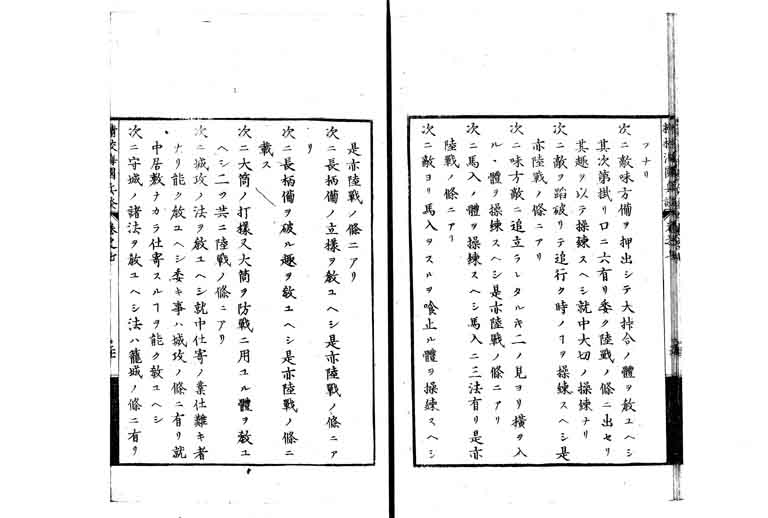 ツナリ
次ニ敵味方備ヲ押出シテ大掛合ノ體ヲ敎ユヘシ
其次第掛リ口ニ六有リ委ク陸戰ノ條ニ出セリ
其趣ヲ以テ操練スヘシ就中大切ノ操練ナリ
次ニ敵ヲ蹈破リテ追行ク時ノヿヲ操練スヘシ是
亦陸戰ノ條ニアリ
次ニ味方敵ニ追立ラレタルキ二ノ見ヨリ横ヲ入
ル體ヲ操練スヘシ是亦陸戰ノ條ニアリ
次ニ馬入ノ體ヲ操練スヘシ馬入ニ三法有リ是亦
陸戰ノ條ニアリ
次ニ敵ヨリ馬入ヲスルヲ喰止ル體ヲ操練スヘシ
是亦陸戰ノ條ニアリ
次ニ長柄備ノ立樣ヲ敎ユヘシ是亦陸戰ノ條ニア
リ
次ニ長柄備ヲ破ル趣ヲ敎ユヘシ是亦陸戰ノ條ニ
載ス
次ニ大筒ノ打樣又大筒ヲ防戰ニ用ユル體ヲ敎ユ
ヘシ二ツ共ニ陸戰ノ條ニアリ
次ニ城攻ノ法ヲ敎ユヘシ就中仕寄ノ業仕難キ者
ナリ能ク敎ユヘシ委キ事ハ城攻ノ條ニ有リ就
中居敷ナカラ仕寄スルヿヲ能ク敎ユヘシ
次ニ守城ノ諸法ヲ敎ユヘシ法ハ籠城ノ條ニ有リ
精校海國兵談 卷之七